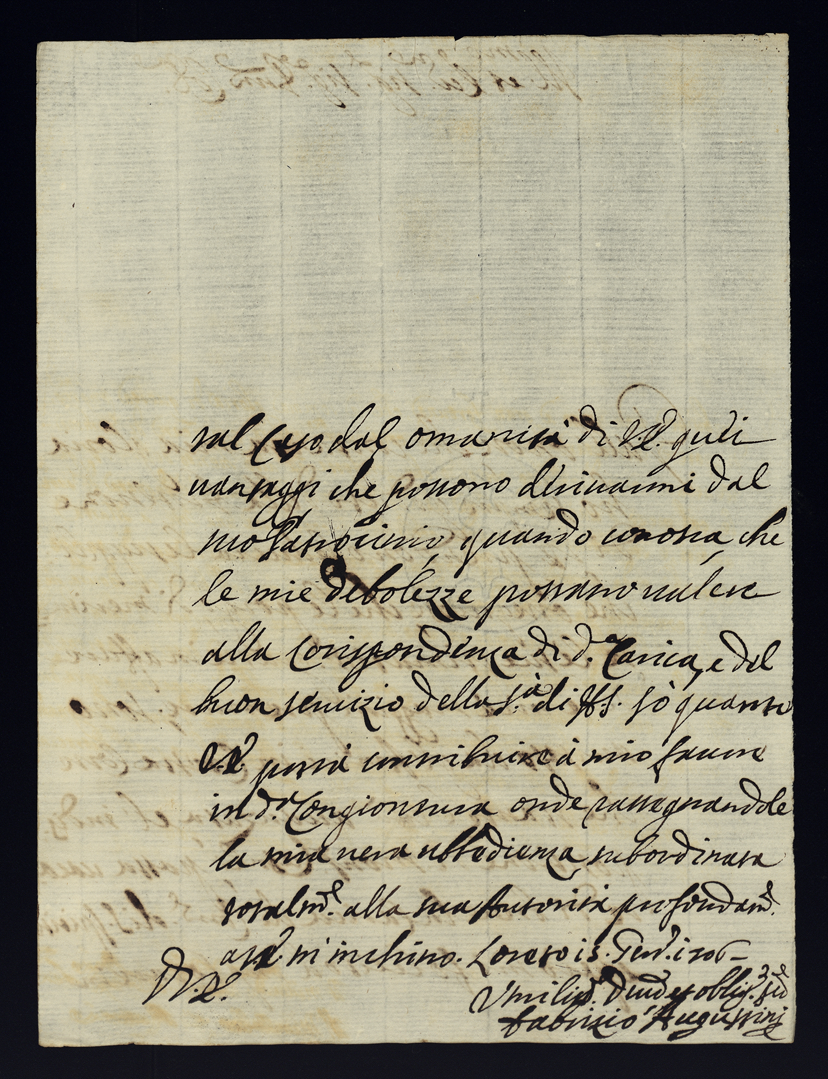 tal caso dal omanità di V.E. quei
vantaggi che possono derivarmi dal
suo Patrocinio, quando conosca che
le mie debolezze possano valere
alla Corispondenza di d.ª Carica, e del
buon servizio della S.tà di N.S. sò quanto
V.E. possa contribuire à mio favore
in d.ª Congiontura onde rassegnandole
la mia vera ubbidienza, subordinata
totalm.e alla sua Autorità profondam.e
a V.E. m'inchino. Loreto 15. Gen.o 1706
D.V.E.
Umiliss.o Div.mo et obblig.mo Ser.e
Fabrizio Augustini